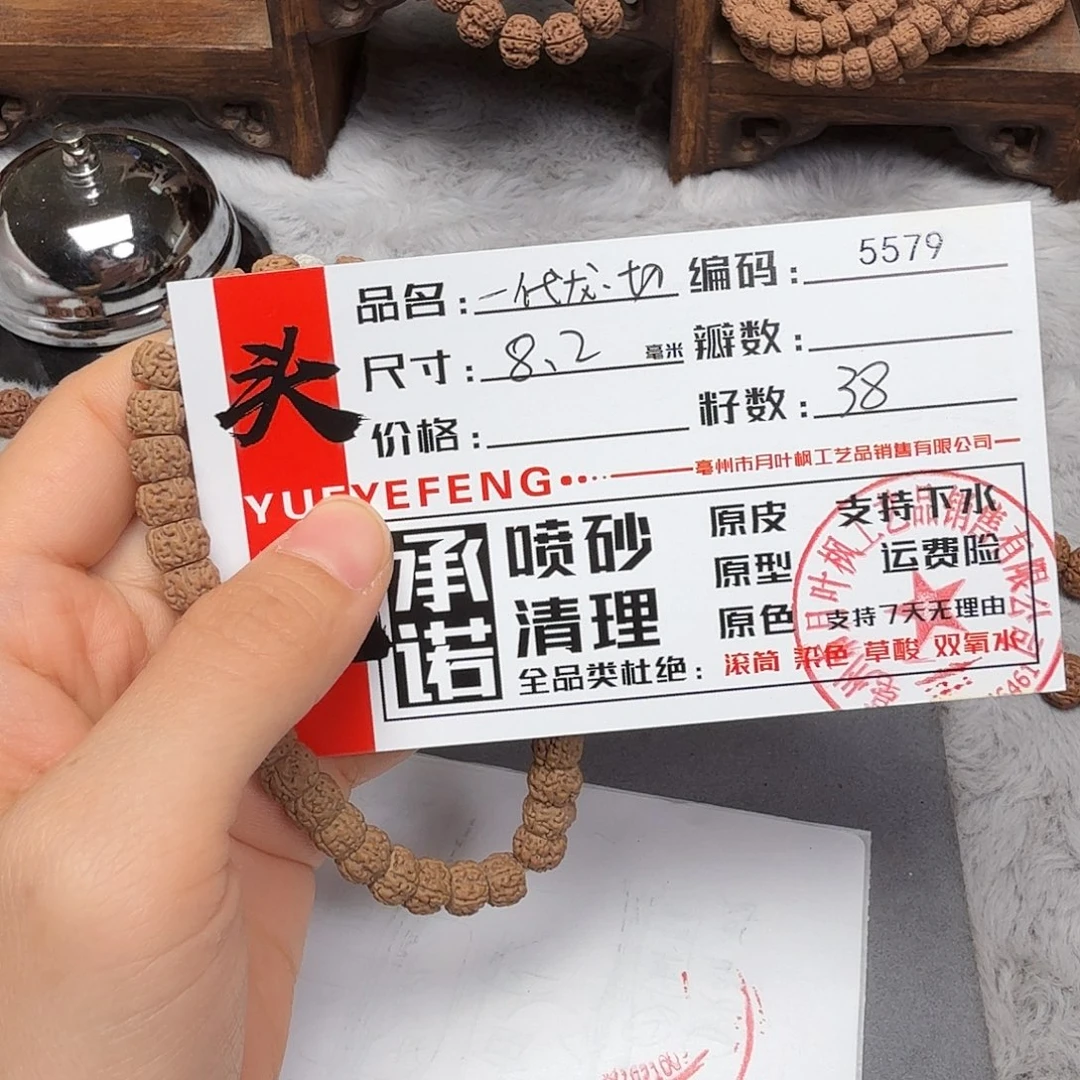 头
品名：一代龙·切 编码：5579
尺寸：8.2 毫米 瓣数：
价格： 籽数：38
YUEYEFENG
亳州市月叶枫工艺品销售有限公司
承诺
喷砂 清理
原皮 支持下水
原型 运费险
原色 支持7天无理由
全品类杜绝：滚筒 染色 草酸 双氧水
月叶枫工艺品销售有限公司